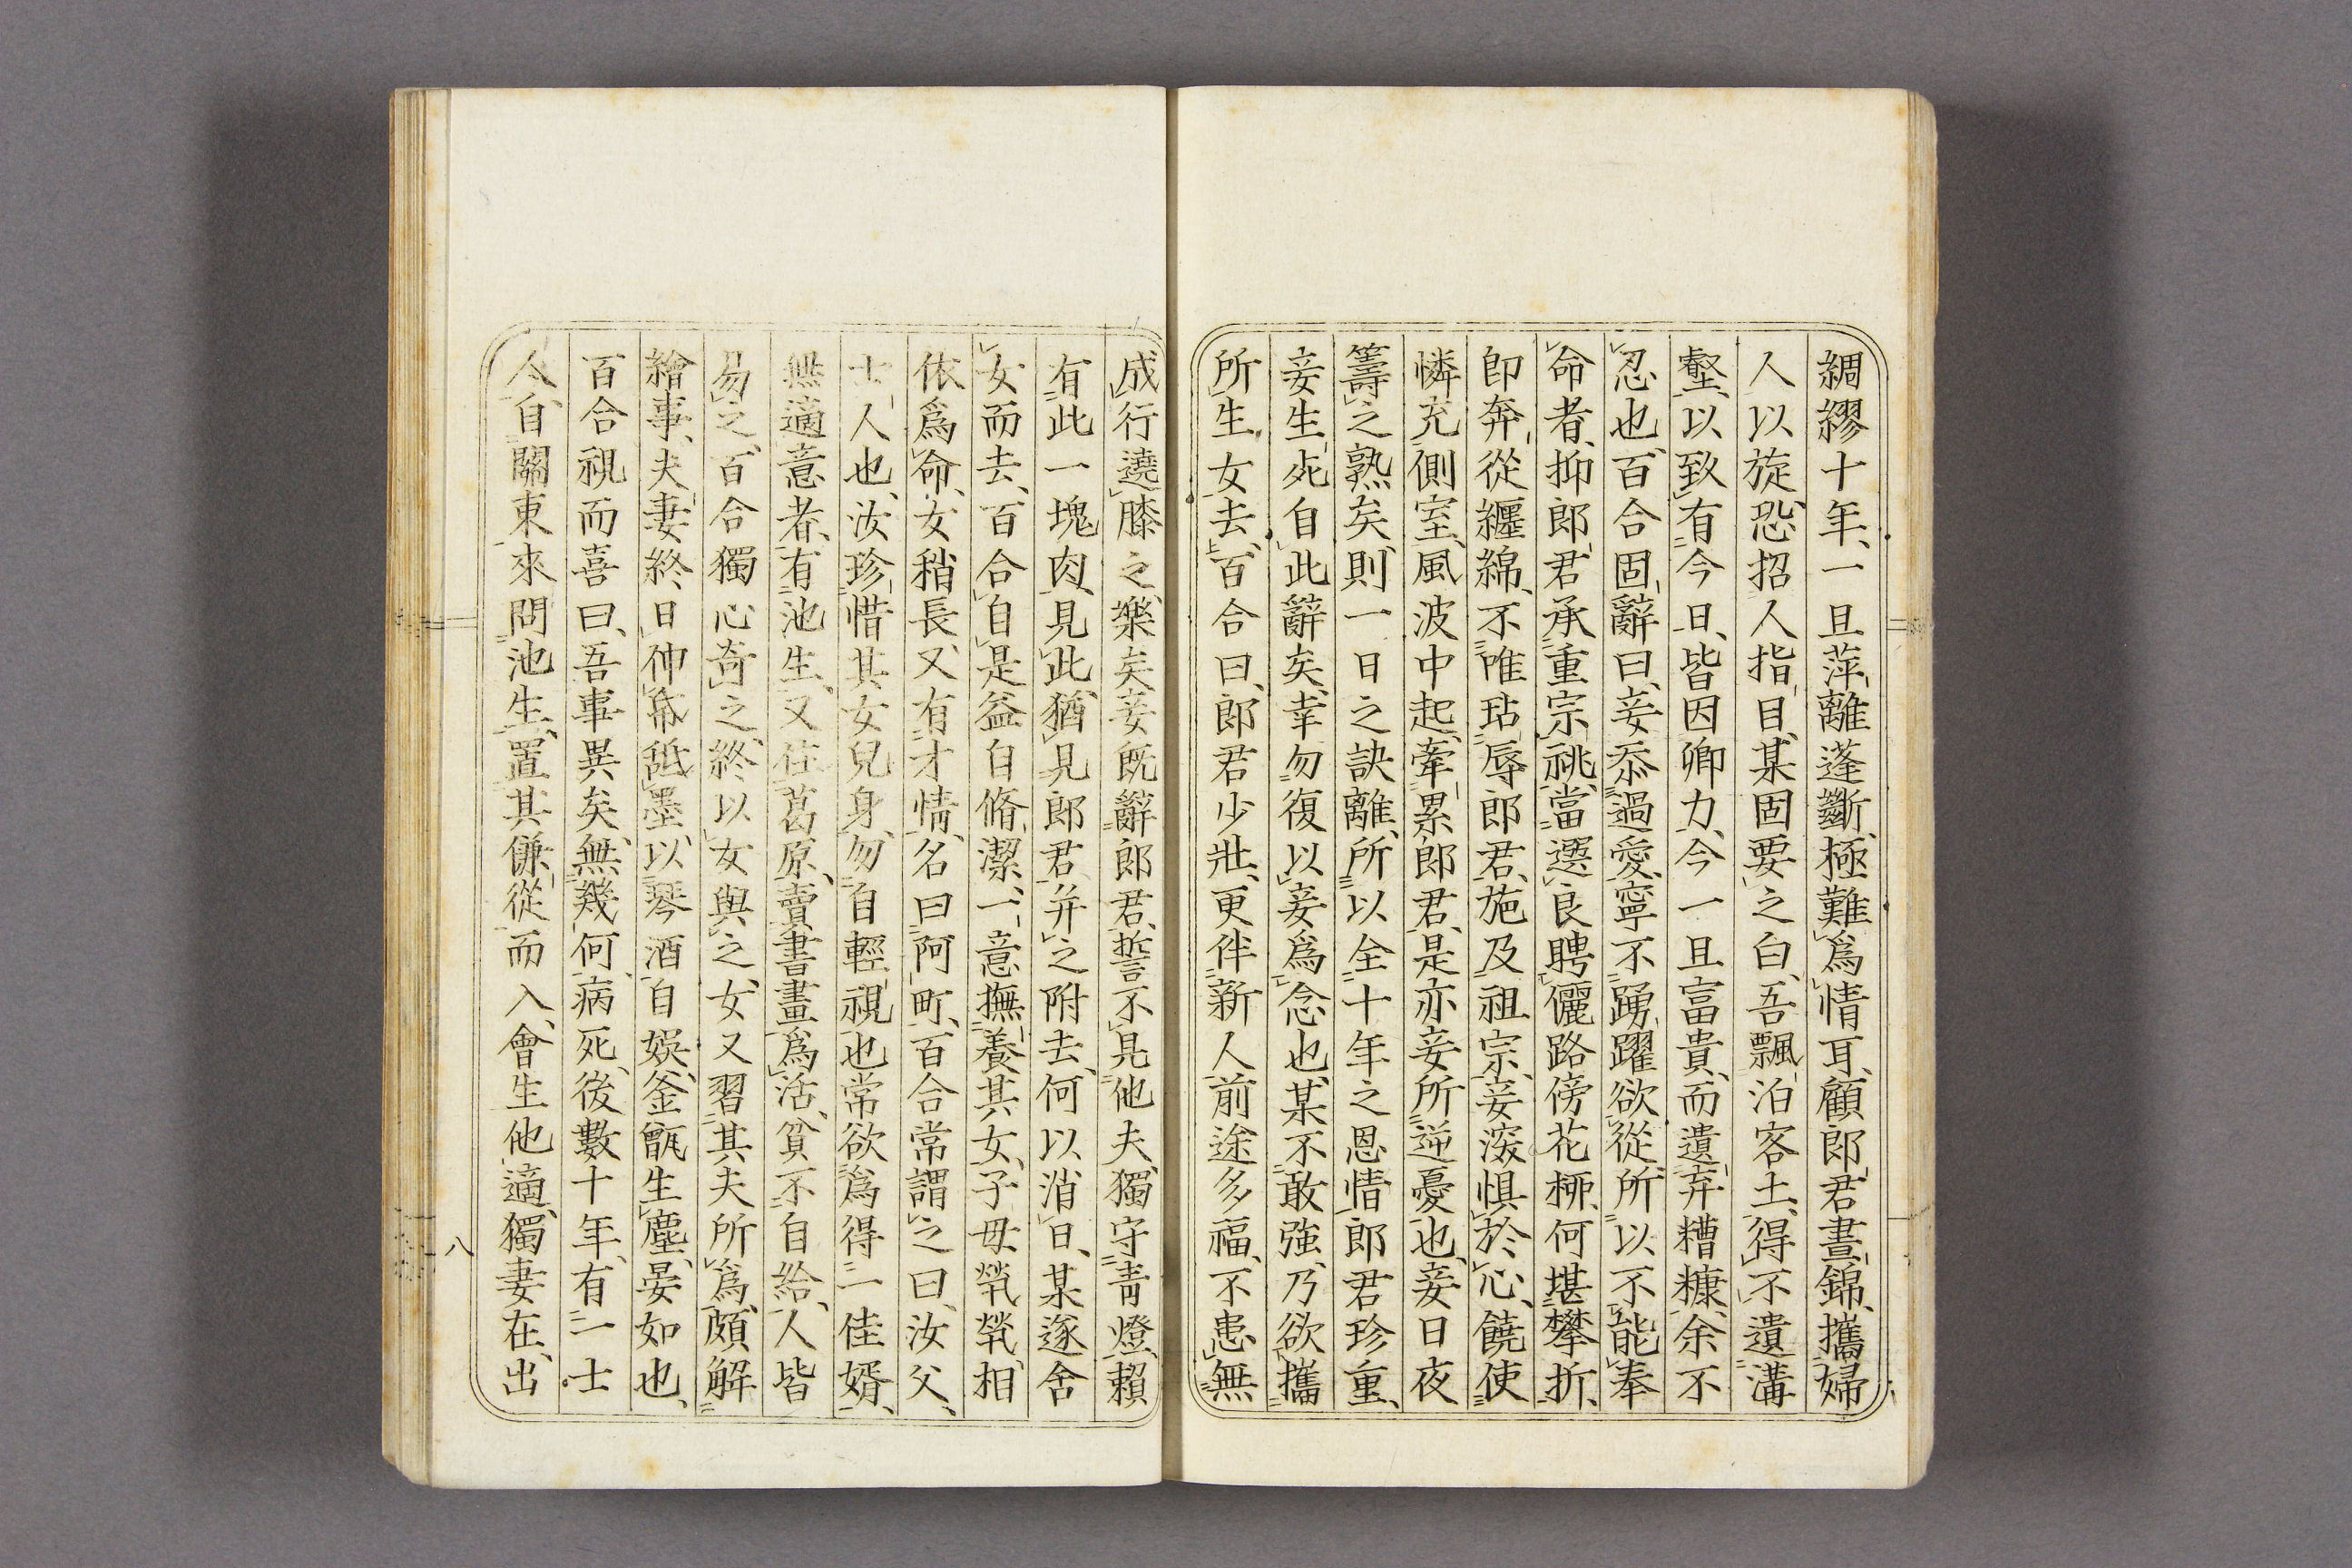 綢繆十年、一旦萍離蓬斷、極難爲情耳、顧郎君晝錦、攜婦
人以旋、恐招人指目、某固要之曰、吾飄泊客土、得不遺溝
壑、以致有今日、皆因卿力、今一旦富貴、而遺弃糟糠、余不
忍也、百合固辭曰、妾忝過愛、寧不踴躍欲從、所以不能奉
命者、抑郎君承重宗祧、當選良聘儷、路傍花柳、何堪攀折、
即奔從纏綿、不唯玷辱郎君、施及祖宗、妾深惧於心、饒使
憐充側室、風波中起、牽累郎君、是亦妾所逆憂也、妾日夜
籌之熟矣、則一日之訣離、所以全十年之恩情、郎君珍重、
妾生死自此辭矣、幸勿復以妾爲念也、某不敢強、乃欲攜
所生女去、百合曰、郎君少壯、更伴新人、前途多福、不患無
成行遶膝之樂矣、妾既辭郎君、誓不見他夫、獨守青燈、賴
有此一塊肉、見此猶見郎君、并之附去、何以消日、某遂舍
女而去、百合自是益自脩潔、一意撫養其女、子母煢煢、相
依爲命、女稍長、又有才情、名曰阿町、百合常謂之曰、汝父、
士人也、汝珍惜其女兒身、勿自輕視也、常欲爲得一佳婿、
無適意者、有池生、又住葛原、賣書畫爲活、貧不自給、人皆
易之、百合獨心奇之、終以女與之、女又習其夫所爲、頗解
繪事、夫妻終日伸帋舐墨、以琴酒自娯、釜甑生塵、晏如也、
百合視而喜曰、吾事畢矣、無幾何病死、後數十年、有一士
人、自關東來問池生、置其傔從而入、會生他適、獨妻在、出
八